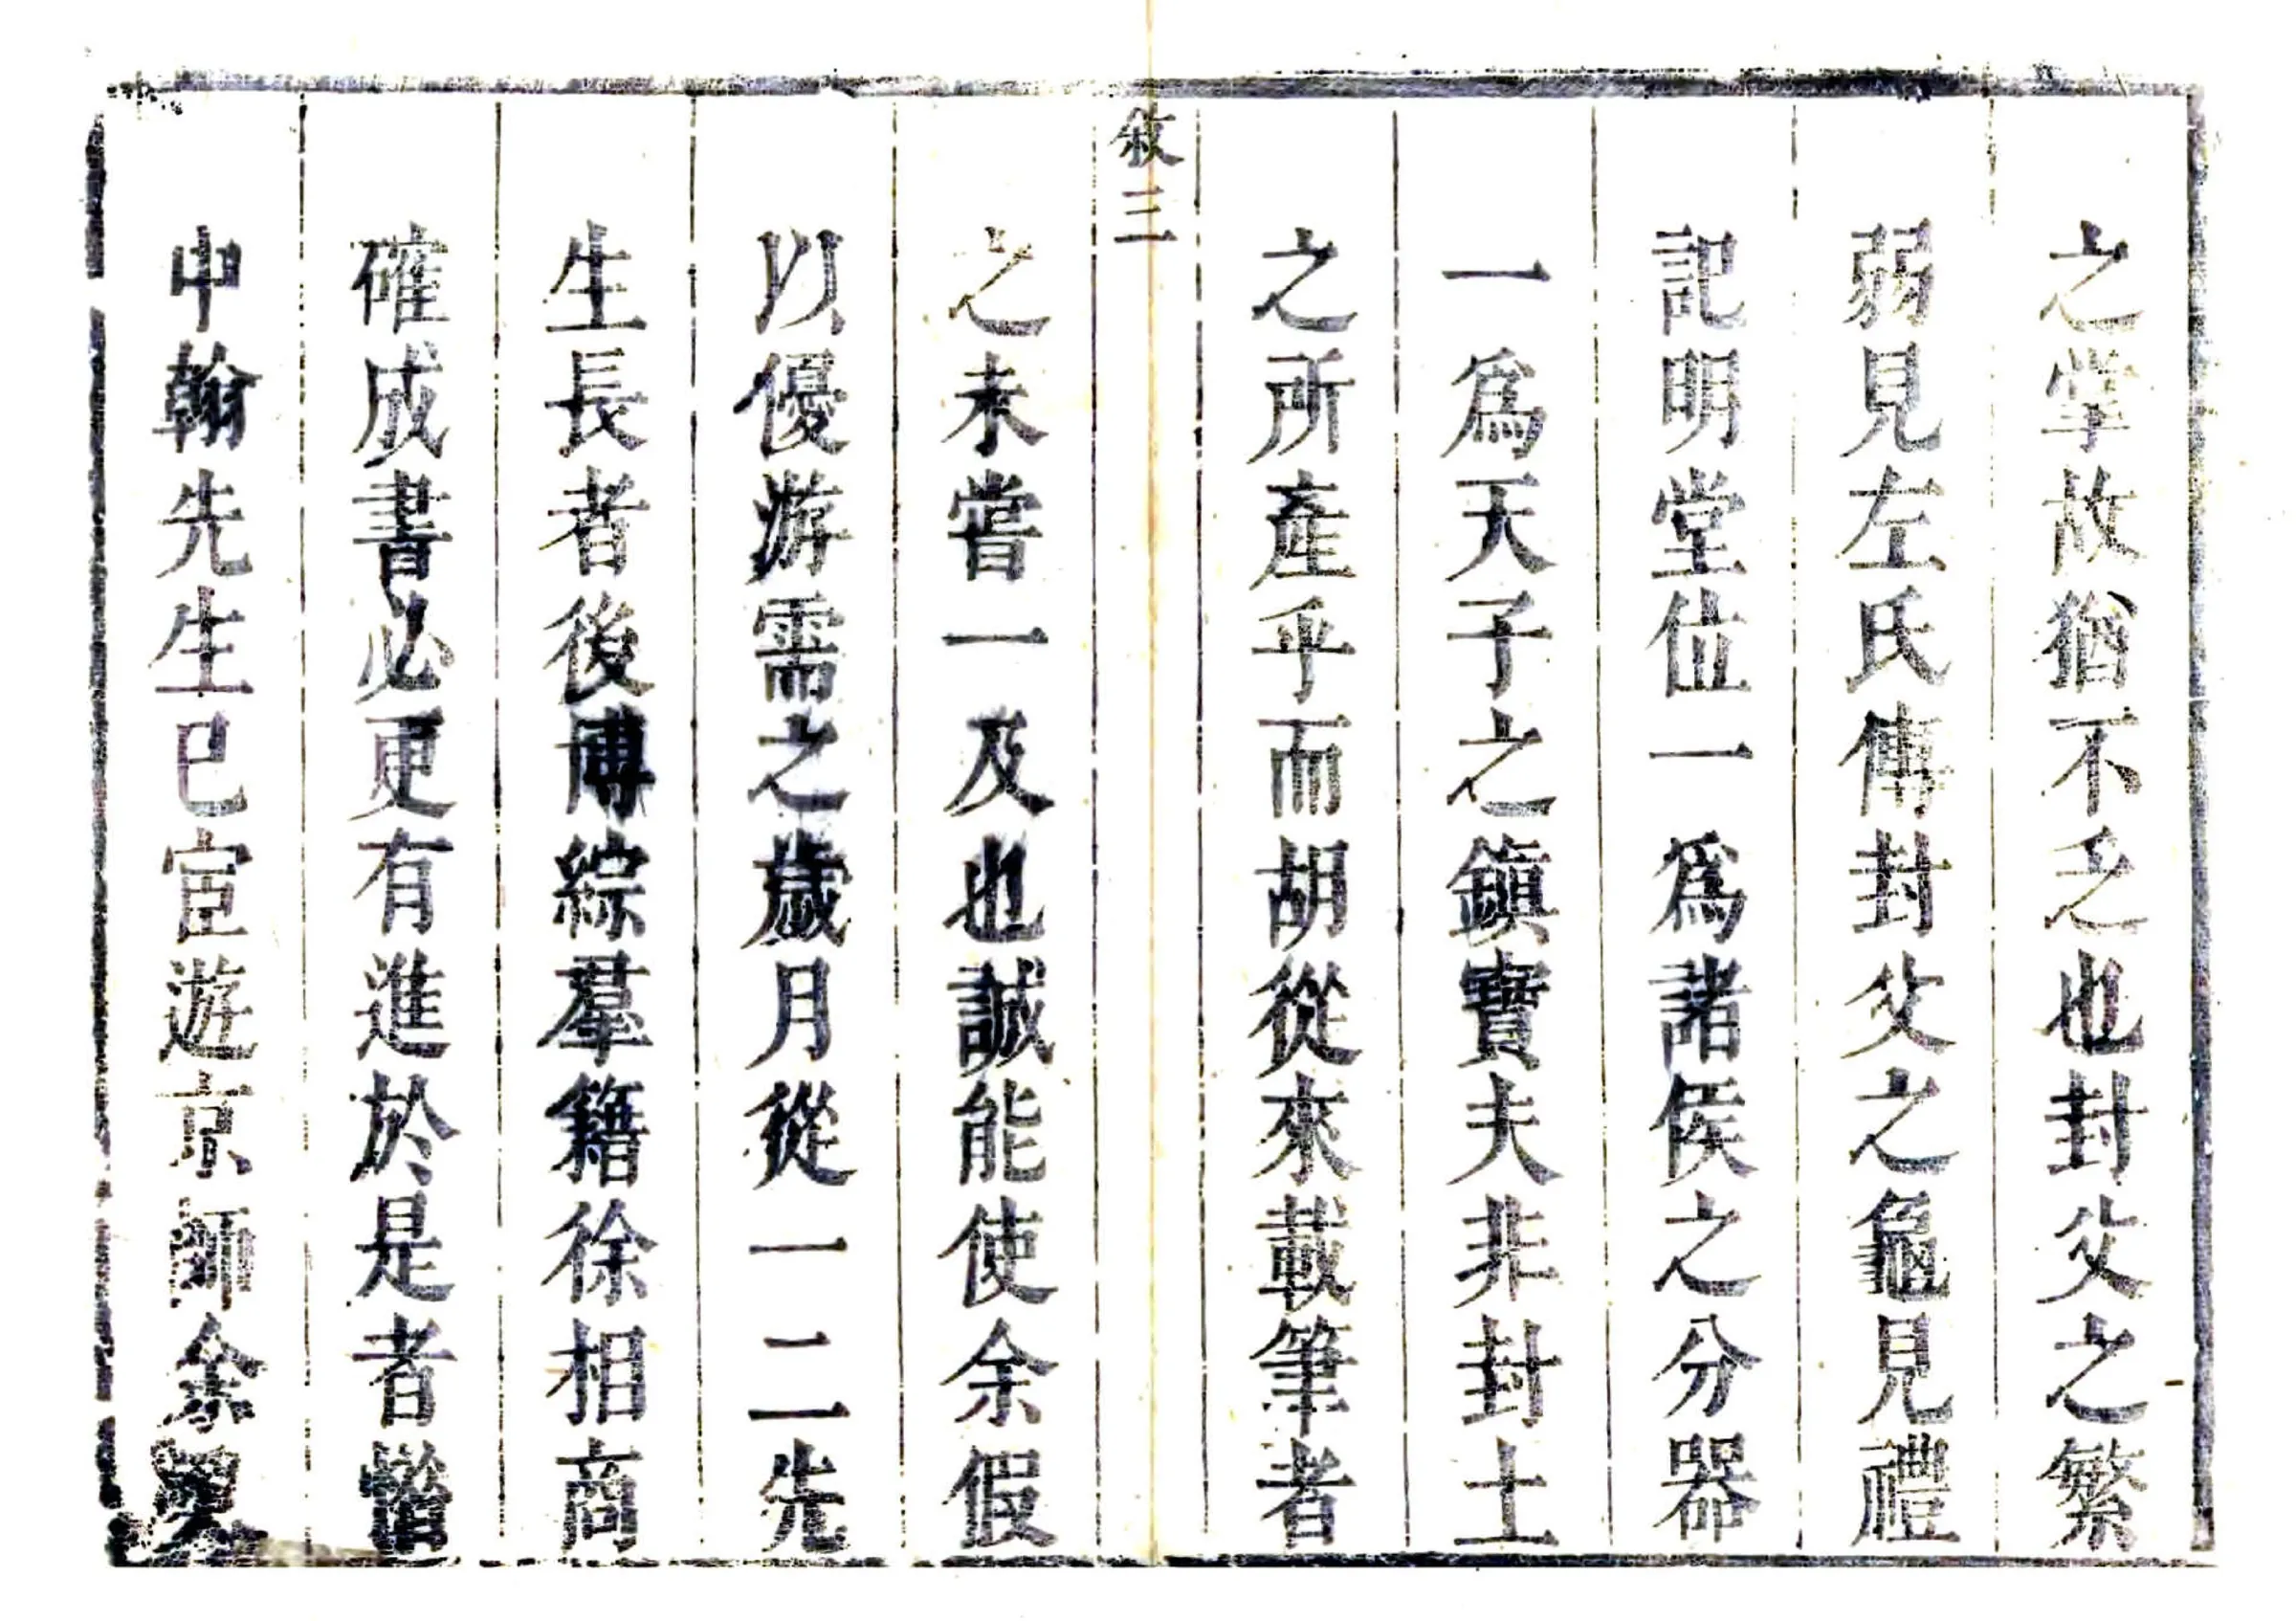 之掌故猶不乏也封父之繁
弱見左氏傳封父之龜見禮
記明堂位一爲諸侯之分器
一爲天子之鎭寶夫非封土
之所產乎而胡從來載筆者
敘三
之未嘗一及也誠能使余假
以優游需之歲月從一二先
生長者後博綜羣籍徐相商
確成書必更有進於是者
中翰先生已宦遊京師余